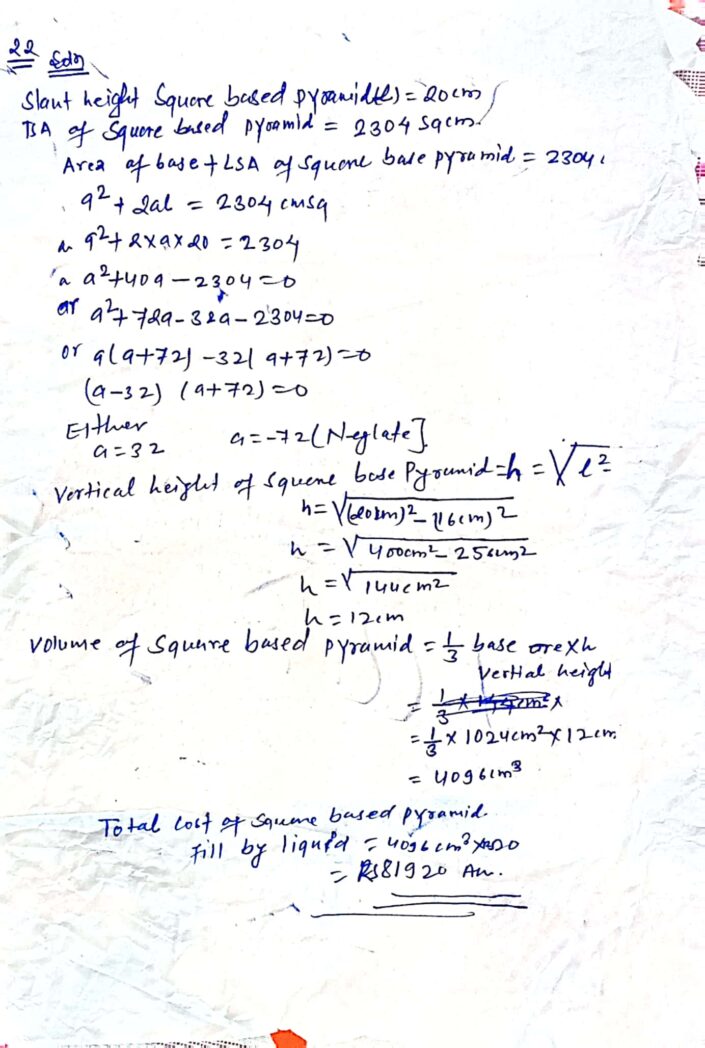 22 Soln
Slant height Square based pyramid(l) = 20cm
TSA of Square based pyramid = 2304 sqcm.
Area of base + LSA of Square base pyramid = 2304
a² + 2al = 2304 cmsq
a² + 2×a×20 = 2304
a²+40a - 2304 = 0
or a²+72a-32a-2304=0
or a(a+72) -32(a+72)=0
(a-32) (a+72)=0
Either
a=32 a=-72 (Neglate]
Vertical height of square base Pyramid=h = √l²
h=√(20cm)²-(16cm)²
h = √400cm²-256cm²
h = √144cm²
h=12cm
volume of Square based pyramid = 1/3 base are×h
Vertial height
= 1/3 × 1024cm²×12cm
= 4096cm³
Total cost of square based pyramid.
Fill by liquid = 4096cm³×20
= Rs81920 An.